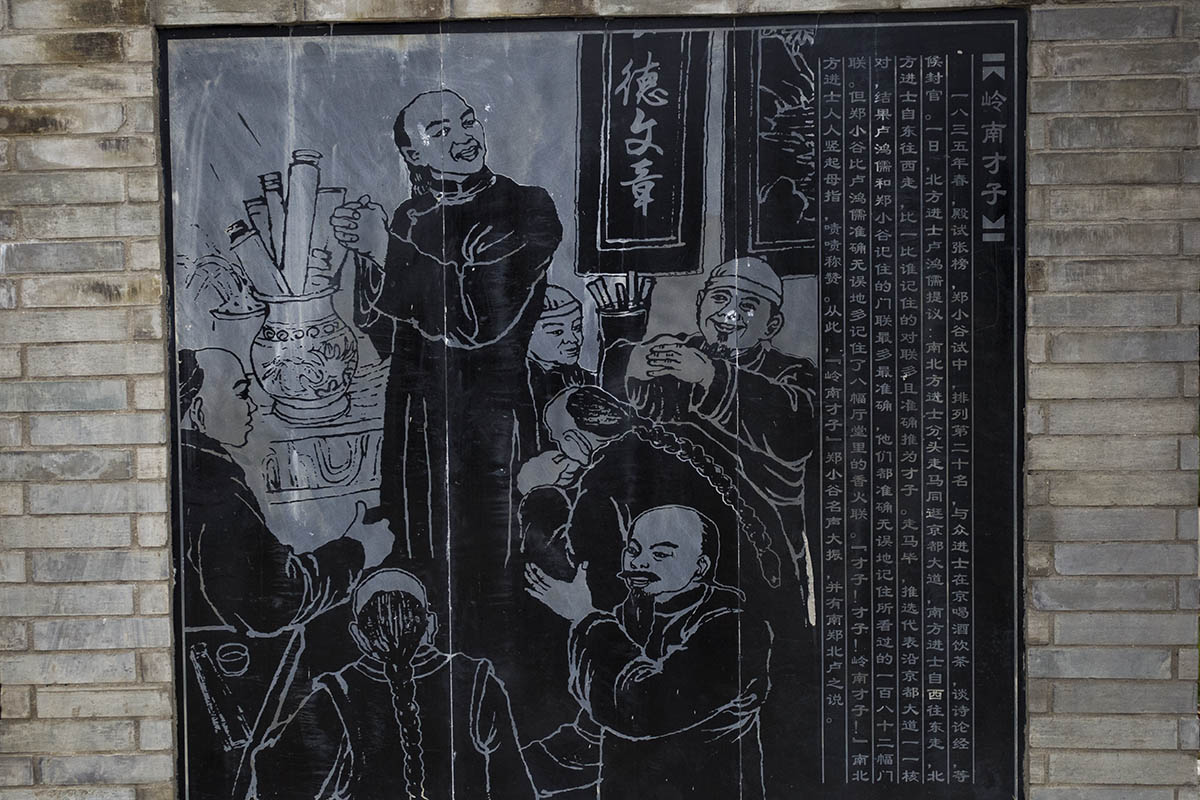 岭南才子
一八三五年春，殿试张榜，郑小谷试中，排列第二十名，与众进士在京喝酒饮茶，谈诗论经，等
候封官。一日，北方进士卢鸿儒提议：南北方进士分头走马同逛京都大道，南方进士自西往东走，北
方进士自东往西走，比一比谁记住的对联多且准确推为才子。走马毕，推选代表沿京都大道一一核
对，结果卢鸿儒和郑小谷记住的门联最多最准确，他们都准确无误地记住所看过的一百八十二幅门
联。但郑小谷比卢鸿儒准确无误地多记住了八幅厅堂里的香火联。「才子！才子！岭南才子！」南北
方进士人人竖起母指，啧啧称赞。从此，「岭南才子」郑小谷名声大振，并有南郑北卢之说。
德文章